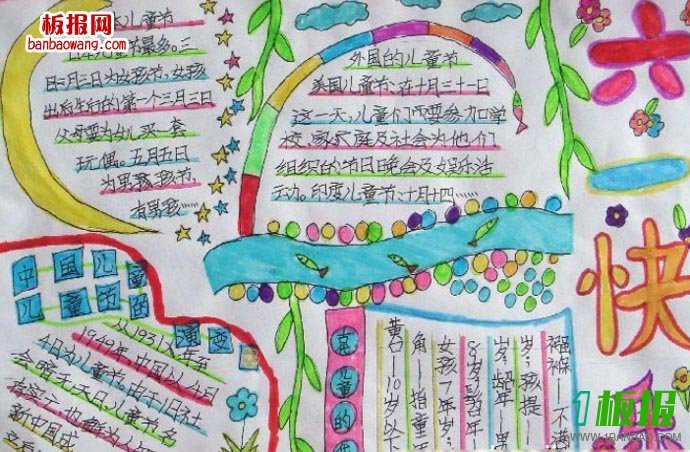 板报网
banbaowang.com
本儿童节
日本儿童节最多。三
月三日为女孩节,女孩
出后生的的第一个三月三日
父母要为女儿买一套
玩偶。五月五日
为男孩孩节,
有男孩……
外国的儿童节
美国儿童节、在十月三十一日
这一天,儿童们都要参加学
校、家庭及社会为他们
组织的节日晚会及娱乐活
动。印度儿童节、十月十四……
六
快
中国儿童
儿童节的
演变
从1931年至
1949年中国以公历4月
4日为儿童节。由于旧社
会暗无天日,儿童节名
新中国成
古儿童的
襁褓—不满
岁;孩提—
岁;龆年—男
8岁;髫年—
女孩7年岁;
角—指童
黄口—10岁以下
1板报
WWW.1BANBAO.COM